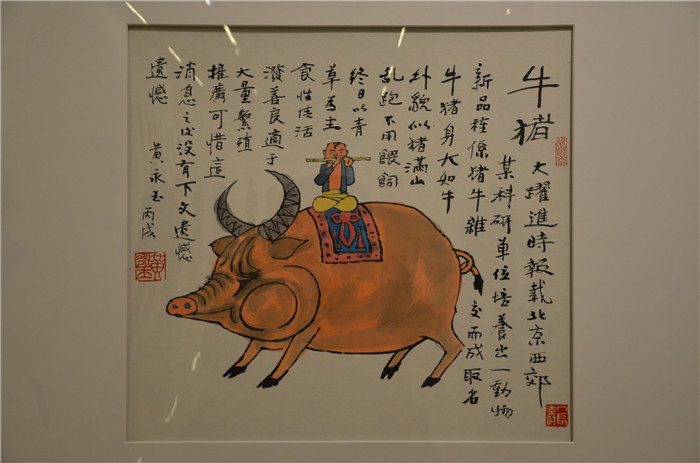 牛猪
大躍進時報载北京西郊
某科研单位培養出一動物
新品種係猪牛雜
交而成取名
牛猪身大如牛
外貌似猪满山
乱跑不用餵飼
终日以青
草为主
食性活
潑善良適于
大量繁殖
推廣可惜這
消息之後没有下文遺憾
遺憾
黄永玉
丙戌